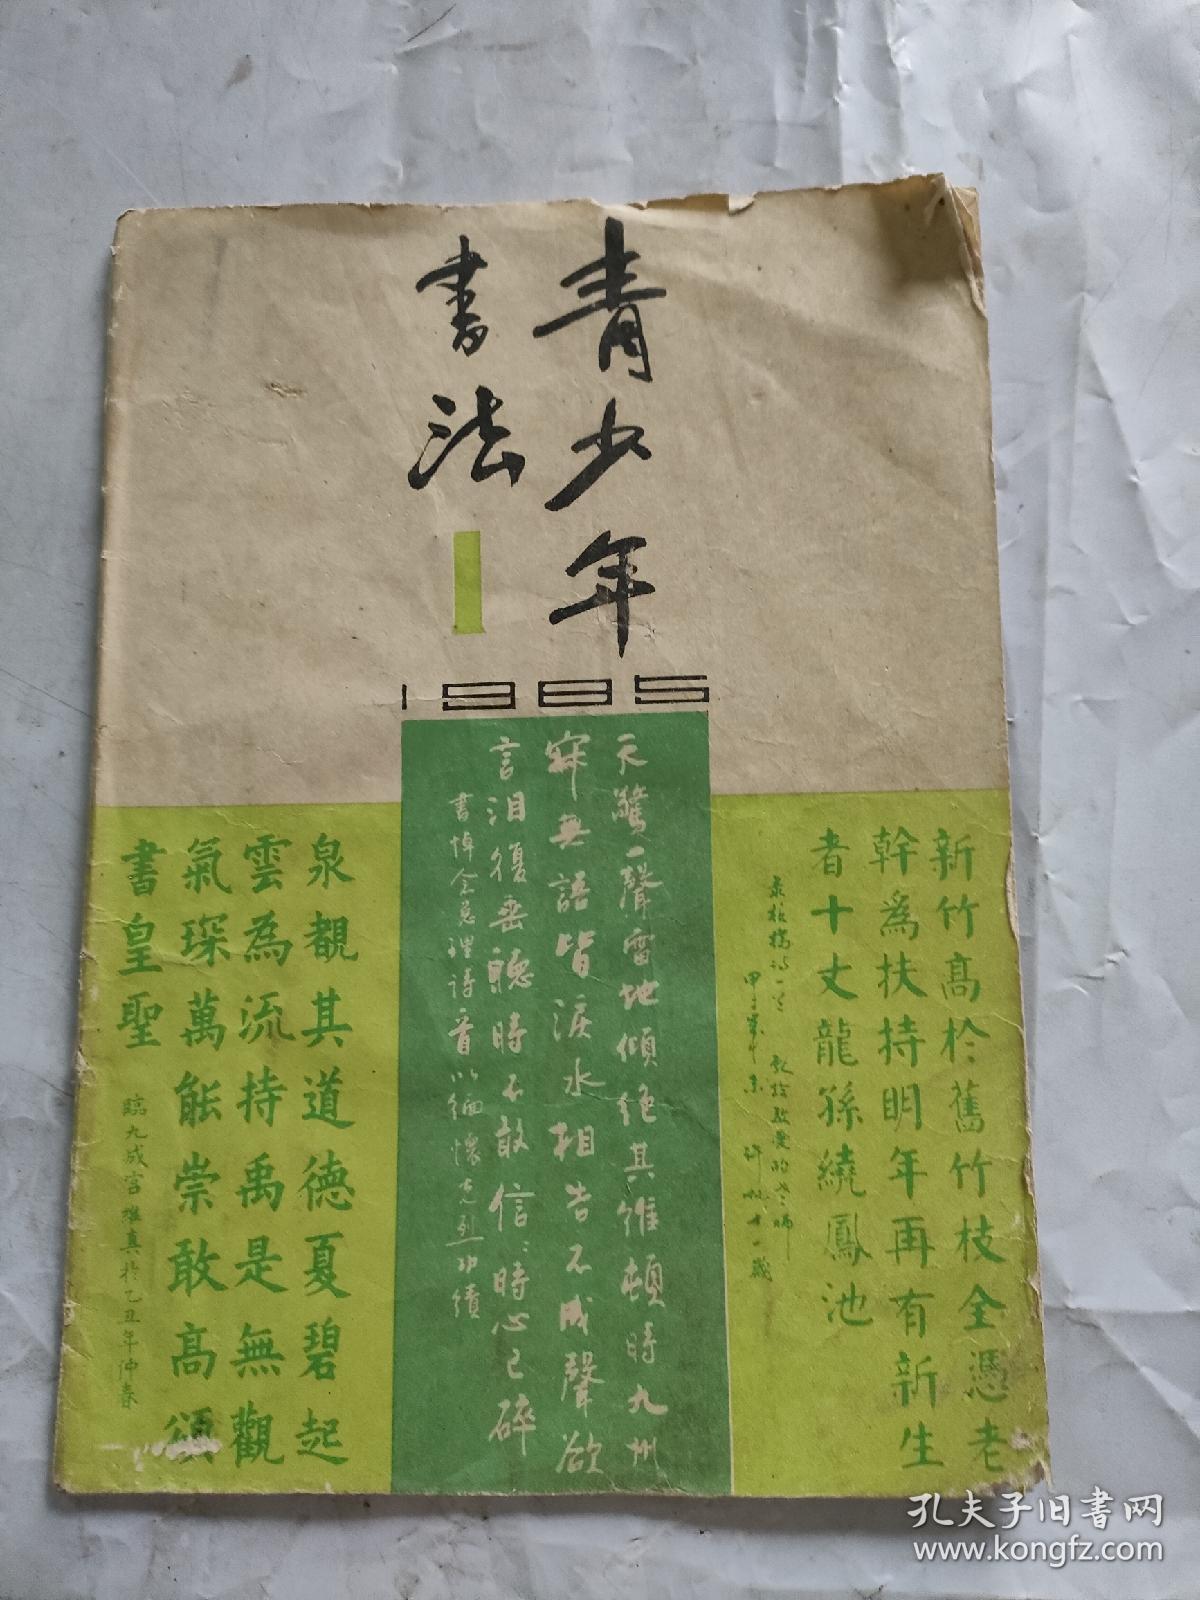 青少年
書法
1
1985
新竹高於舊竹枝全憑老
幹爲扶持明年再有新生
者十丈龍孫繞鳳池
天驚一聲雷地傾絕其維頓時九州
寂無語皆淚水相告不成聲欲
言淚復垂聽時不敢信:時心已碎
書悼念總理詩一首以緬懷先烈功績
泉覩其道德夏碧起
雲為流持禹是無觀
氣琛萬能崇敢高頌
書皇聖
臨九成宮雄真於乙丑年仲春
孔夫子旧书网
www.kongfz.com